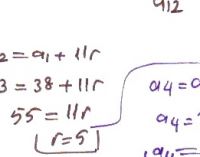 a12
2 = a1 + 11r
3 = 38 + 11r
55 = 11r
r = 5
a4 = a
a4 =
a4 =